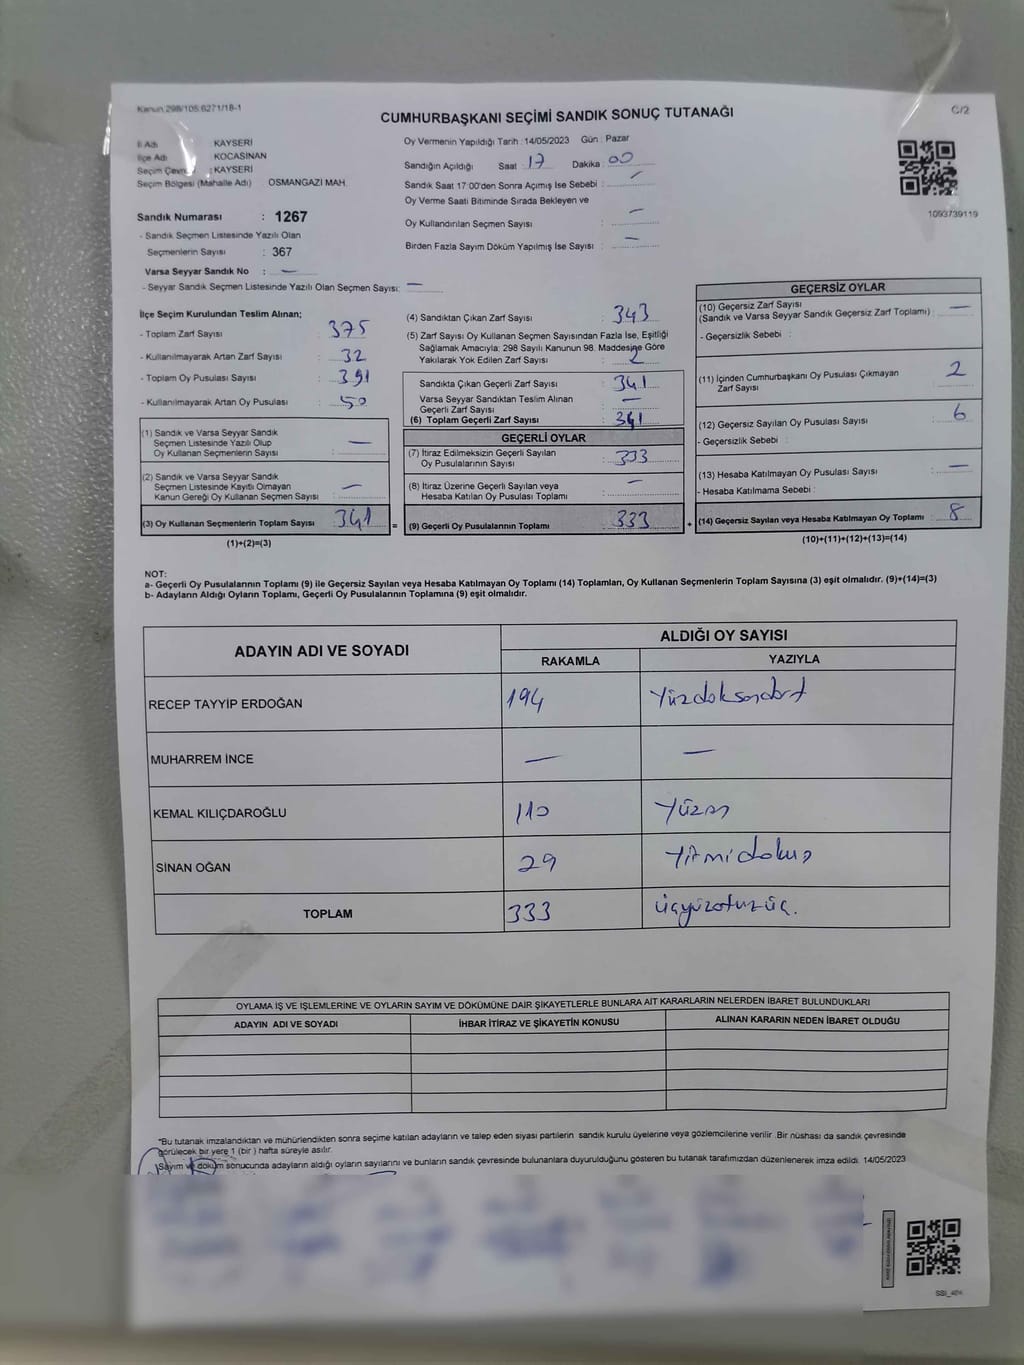 Kanun 298/105.6271/18-1
C/2
CUMHURBAŞKANI SEÇİMİ SANDIK SONUÇ TUTANAĞI
İl Adı KAYSERİ
İlçe Adı KOCASİNAN
Seçim Çevre : KAYSERİ
Seçim Bölgesi (Mahalle Adı) OSMANGAZİ MAH.
Oy Vermenin Yapıldığı Tarih : 14/05/2023 Gün : Pazar
Sandığın Açıldığı Saat : 17 Dakika : 00
Sandık Saat 17:00'den Sonra Açılmış İse Sebebi :
Oy Verme Saati Bitiminde Sırada Bekleyen ve
Oy Kullandırılan Seçmen Sayısı : —
Birden Fazla Sayım Döküm Yapılmış İse Sayısı : —
1093739119
Sandık Numarası : 1267
- Sandık Seçmen Listesinde Yazılı Olan
Seçmenlerin Sayısı : 367
Varsa Seyyar Sandık No : —
- Seyyar Sandık Seçmen Listesinde Yazılı Olan Seçmen Sayısı: —
İlçe Seçim Kurulundan Teslim Alınan;
- Toplam Zarf Sayısı : 375
- Kullanılmayarak Artan Zarf Sayısı : 32
- Toplam Oy Pusulası Sayısı : 391
- Kullanılmayarak Artan Oy Pusulası : 50
(1) Sandık ve Varsa Seyyar Sandık
Seçmen Listesinde Yazılı Olup
Oy Kullanan Seçmenlerin Sayısı : —
(2) Sandık ve Varsa Seyyar Sandık
Seçmen Listesinde Kayıtlı Olmayan
Kanun Gereği Oy Kullanan Seçmen Sayısı : —
(3) Oy Kullanan Seçmenlerin Toplam Sayısı : 341 =
(1)+(2)=(3)
(4) Sandıktan Çıkan Zarf Sayısı : 343
(5) Zarf Sayısı Oy Kullanan Seçmen Sayısından Fazla İse, Eşitliği
Sağlamak Amacıyla; 298 Sayılı Kanunun 98. Maddesine Göre
Yakılarak Yok Edilen Zarf Sayısı : 2
Sandıkta Çıkan Geçerli Zarf Sayısı : 341
Varsa Seyyar Sandıktan Teslim Alınan
Geçerli Zarf Sayısı : —
(6) Toplam Geçerli Zarf Sayısı : 341
GEÇERLİ OYLAR
(7) İtiraz Edilmeksizin Geçerli Sayılan
Oy Pusulalarının Sayısı : 333
(8) İtiraz Üzerine Geçerli Sayılan veya
Hesaba Katılan Oy Pusulası Toplamı : —
(9) Geçerli Oy Pusulalarının Toplamı : 333 +
GEÇERSİZ OYLAR
(10) Geçersiz Zarf Sayısı
(Sandık ve Varsa Seyyar Sandık Geçersiz Zarf Toplamı) : —
- Geçersizlik Sebebi :
(11) İçinden Cumhurbaşkanı Oy Pusulası Çıkmayan
Zarf Sayısı : 2
(12) Geçersiz Sayılan Oy Pusulası Sayısı : 6
- Geçersizlik Sebebi :
(13) Hesaba Katılmayan Oy Pusulası Sayısı : —
- Hesaba Katılmama Sebebi :
(14) Geçersiz Sayılan veya Hesaba Katılmayan Oy Toplamı : 8
(10)+(11)+(12)+(13)=(14)
NOT:
a- Geçerli Oy Pusulalarının Toplamı (9) ile Geçersiz Sayılan veya Hesaba Katılmayan Oy Toplamı (14) Toplamları, Oy Kullanan Seçmenlerin Toplam Sayısına (3) eşit olmalıdır. (9)+(14)=(3)
b- Adayların Aldığı Oyların Toplamı, Geçerli Oy Pusulalarının Toplamına (9) eşit olmalıdır.
ADAYIN ADI VE SOYADI
ALDIĞI OY SAYISI
RAKAMLA YAZIYLA
RECEP TAYYİP ERDOĞAN 194 Yüzdoksandört
MUHARREM İNCE — —
KEMAL KILIÇDAROĞLU 110 Yüzon
SİNAN OĞAN 29 Yirmidokuz
TOPLAM 333 üçyüzotuzüç.
OYLAMA İŞ VE İŞLEMLERİNE VE OYLARIN SAYIM VE DÖKÜMÜNE DAİR ŞİKAYETLERLE BUNLARA AİT KARARLARIN NELERDEN İBARET BULUNDUKLARI
ADAYIN ADI VE SOYADI İHBAR İTİRAZ VE ŞİKAYETİN KONUSU ALINAN KARARIN NEDEN İBARET OLDUĞU
*Bu tutanak imzalandıktan ve mühürlendikten sonra seçime katılan adayların ve talep eden siyasi partilerin sandık kurulu üyelerine veya gözlemcilerine verilir .Bir nüshası da sandık çevresinde
görülecek bir yere 1 (bir ) hafta süreyle asılır.
Sayım ve döküm sonucunda adayların aldığı oyların sayılarını ve bunların sandık çevresinde bulunanlara duyurulduğunu gösteren bu tutanak tarafımızdan düzenlenerek imza edildi. 14/05/2023